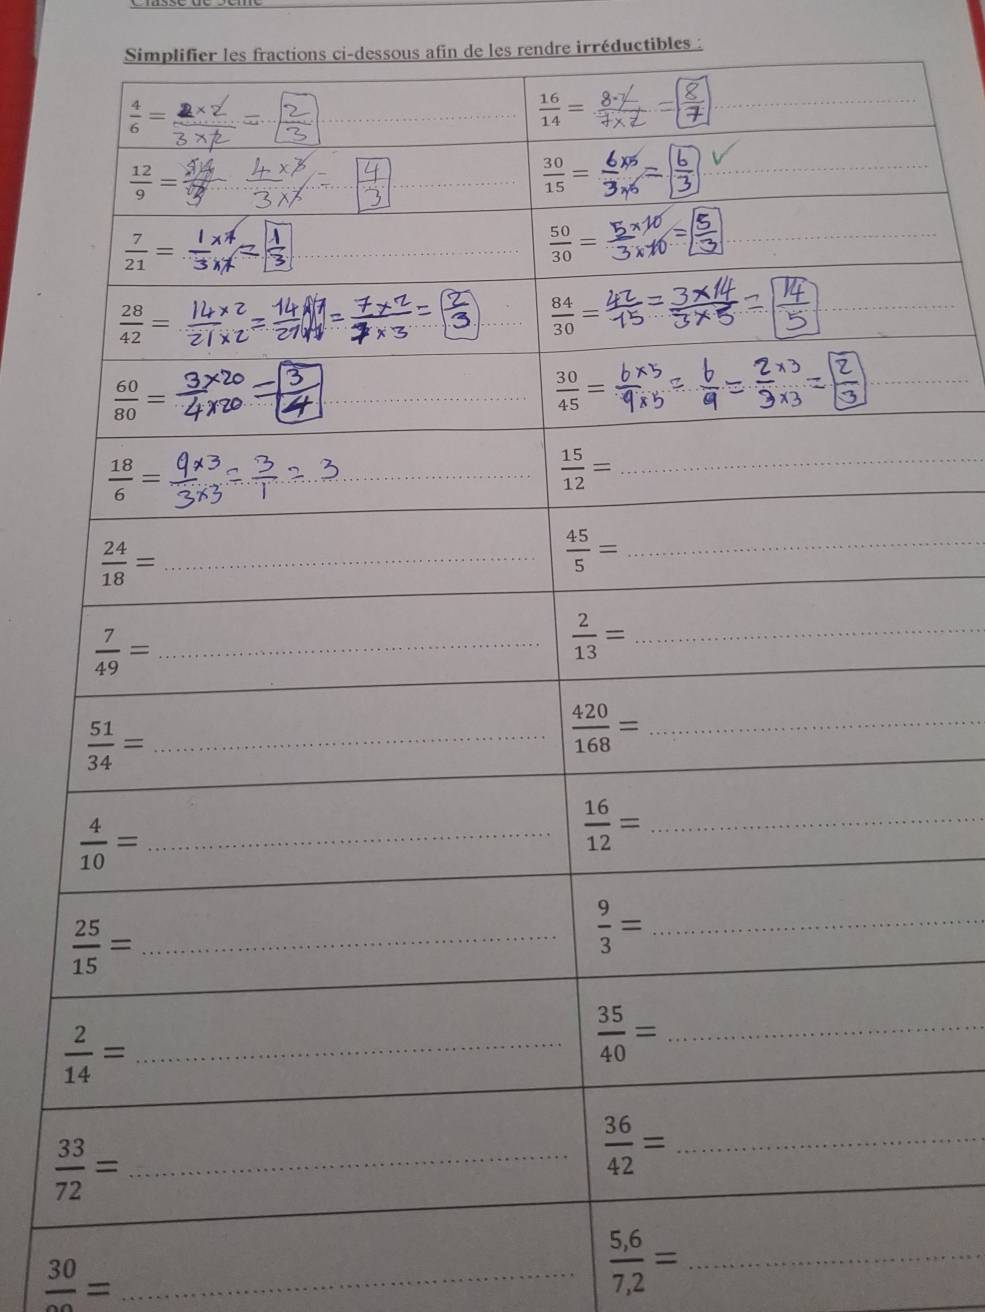 Classe de 5ème
Simplifier les fractions ci-dessous afin de les rendre irréductibles :
4/6 = 2×2/3×2 = 2/3
16/14 = 8×2/7×2 = 8/7
12/9 = 4×3/3×3 = 4/3
30/15 = 6×5/3×5 = 6/3 ✓
7/21 = 1×7/3×7 = 1/3
50/30 = 5×10/3×10 = 5/3
28/42 = 14×2/21×2 = 14/21 = 7×2/7×3 = 2/3
84/30 = 42/15 = 3×14/3×5 = 14/5
60/80 = 3×20/4×20 = 3/4
30/45 = 6×5/9×5 = 6/9 = 2×3/3×3 = 2/3
18/6 = 9×3/3×3 = 3/1 = 3
15/12 =
24/18 =
45/5 =
7/49 =
2/13 =
51/34 =
420/168 =
4/10 =
16/12 =
25/15 =
9/3 =
2/14 =
35/40 =
33/72 =
36/42 =
30/ =
5,6/7,2 =